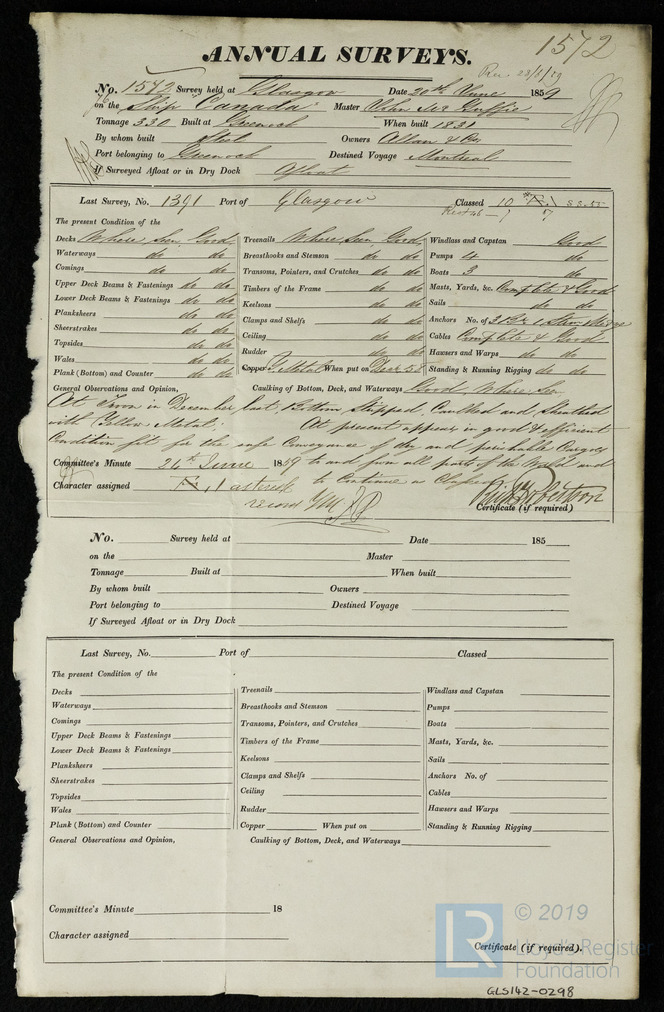 ANNUAL SURVEYS.
1572
Rec. 23/8/59
No. 1572 Survey held at Glasgow Date 20th June 1859
on the Ship "Canada" Master John Mc Guffie
Tonnage 330 Built at Greenock When built 1831
By whom built Steel Owners Allan & Co
Port belonging to Greenock Destined Voyage Montreal
If Surveyed Afloat or in Dry Dock Afloat
Last Survey, No. 1391 Port of Glasgow Classed 10
The present Condition of the
Decks Where Seen Good
Waterways do do
Comings do do
Upper Deck Beams & Fastenings do do
Lower Deck Beams & Fastenings do do
Planksheers do do
Sheerstrakes do do
Topsides do do
Wales do do
Plank (Bottom) and Counter do do
Treenails Where Seen Good
Breasthooks and Stemson do do
Transoms, Pointers, and Crutches do do
Timbers of the Frame do do
Keelsons do do
Clamps and Shelfs do do
Ceiling do do
Rudder do do
Copper Y Metal When put on Decr 58
Windlass and Capstan Good
Pumps 4 do
Boats 3 do
Masts, Yards, &c. Complete & Good
Sails do do
Anchors No. of 3
Cables Complete & Good
Hawsers and Warps do do
Standing & Running Rigging do do
General Observations and Opinion, Caulking of Bottom, Deck, and Waterways Good, Where Seen
At Troon in December last, Bottom Stripped, Caulked and Sheathed
with Yellow Metal. At present appears in good & efficient
Condition fit for the safe Conveyance of dry and perishable Cargoes
to and from all parts of the World and
Committee's Minute 24th June 1859
to Continue as Classed
Character assigned 1 asterisk
record YM
Robertson
Certificate (if required)
No. Survey held at Date 185
on the Master
Tonnage Built at When built
By whom built Owners
Port belonging to Destined Voyage
If Surveyed Afloat or in Dry Dock
Last Survey, No. Port of Classed
The present Condition of the
Decks
Waterways
Comings
Upper Deck Beams & Fastenings
Lower Deck Beams & Fastenings
Planksheers
Sheerstrakes
Topsides
Wales
Plank (Bottom) and Counter
Treenails
Breasthooks and Stemson
Transoms, Pointers, and Crutches
Timbers of the Frame
Keelsons
Clamps and Shelfs
Ceiling
Rudder
Copper When put on
Windlass and Capstan
Pumps
Boats
Masts, Yards, &c.
Sails
Anchors No. of
Cables
Hawsers and Warps
Standing & Running Rigging
General Observations and Opinion, Caulking of Bottom, Deck, and Waterways
Committee's Minute 18
Character assigned
Certificate (if required).
LR
© 2019
Lloyd's Register
Foundation
GLS142-0298